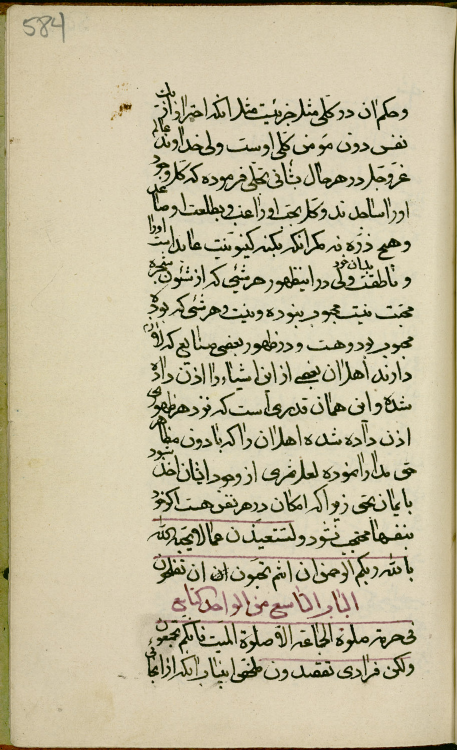 584
و حکم ان دو کلی مثل جزئیت مثل انکه احتراز از
نفس دون مومن کلی اوست ولی خداوند عالم
عز و جل در هر حال بشانی تجلی فرموده که کل وجود
اورا ساجدند و کل بحب او راغب و بطلعت او
و هیچ ذره نه مگر انکه بکینونیت عابد اورا است
و ناطقست ولی در این ظهور هر شیئ که از شئون
محبت نیست محبوب نبوده و نیست و هر شیئ که بوده
محبوب بود و هست و در ظهور بعضی صنایع که
دارند اهل ان بعضی از ان اشیاء را اذن داده
شده و این همان قدری است که نزد هر ظهوری
اذن داده شده اهل ان را که با دون
حق مدارا نموده لعل ثمری از وجود ایشان اخذ شود
بایمان بحق زیرا که امکان در هر نفس هست اگر خود
بنفسها محتجب نشود و لتستعیذن عما لا یحبه الله
بالله ربکم الرحمن ان انتم تحبون ان
الباب التاسع من الواحد التاسع
فی حرمة صلوة الجماعة الا صلوة المیت فانکم تجتمعون
ولکن فرادی تقصدون ملخص این باب انکه اذن